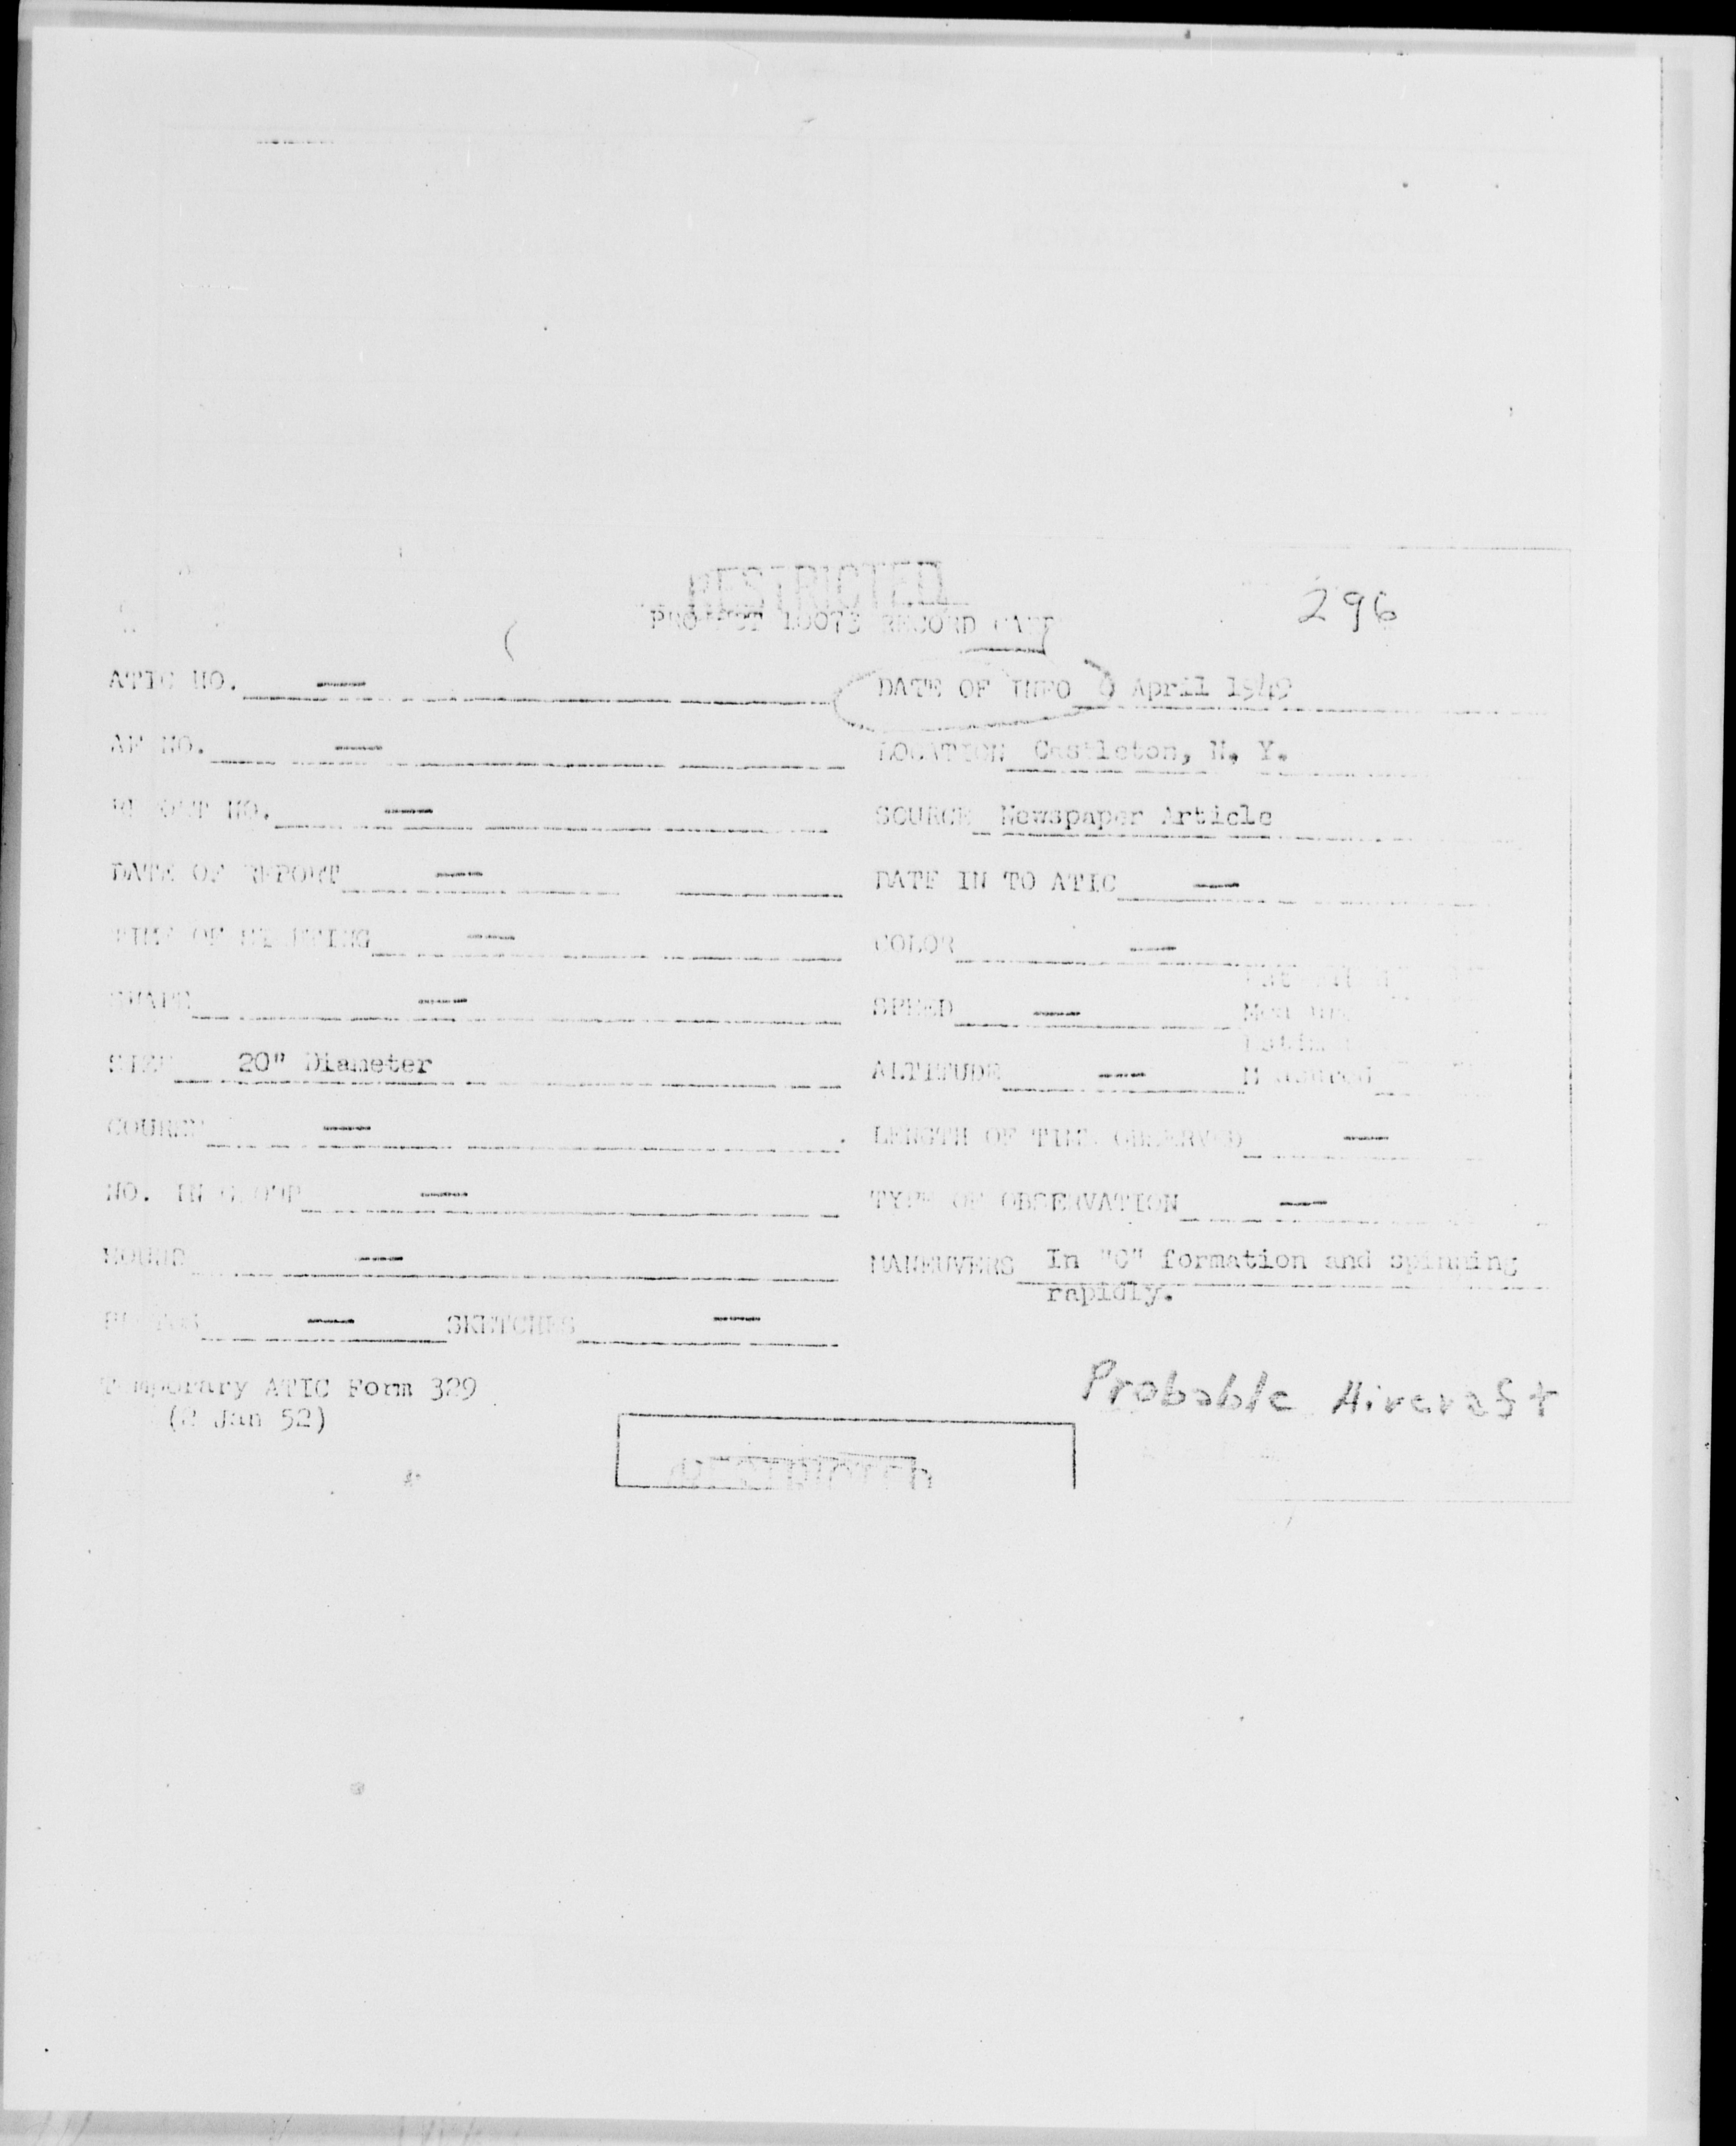 RESTRICTED
PROJECT 10073 RECORD CARD
296
ATIC NO. —
DATE OF INFO April 1949
AF NO. —
LOCATION Castleton, N. Y.
REPORT NO. —
SOURCE Newspaper Article
DATE OF REPORT —
DATE IN TO ATIC —
TIME OF SIGHTING —
COLOR —
SHAPE —
SPEED —
SIZE 20" Diameter
ALTITUDE —
Measured
COURSE —
LENGTH OF TIME OBSERVED —
NO. IN GROUP —
TYPE OF OBSERVATION —
SOUND —
MANEUVERS In "C" formation and spinning
rapidly.
PHOTOS — SKETCHES —
Temporary ATIC Form 329
(2 Jan 52)
Probable Aircraft
RESTRICTED